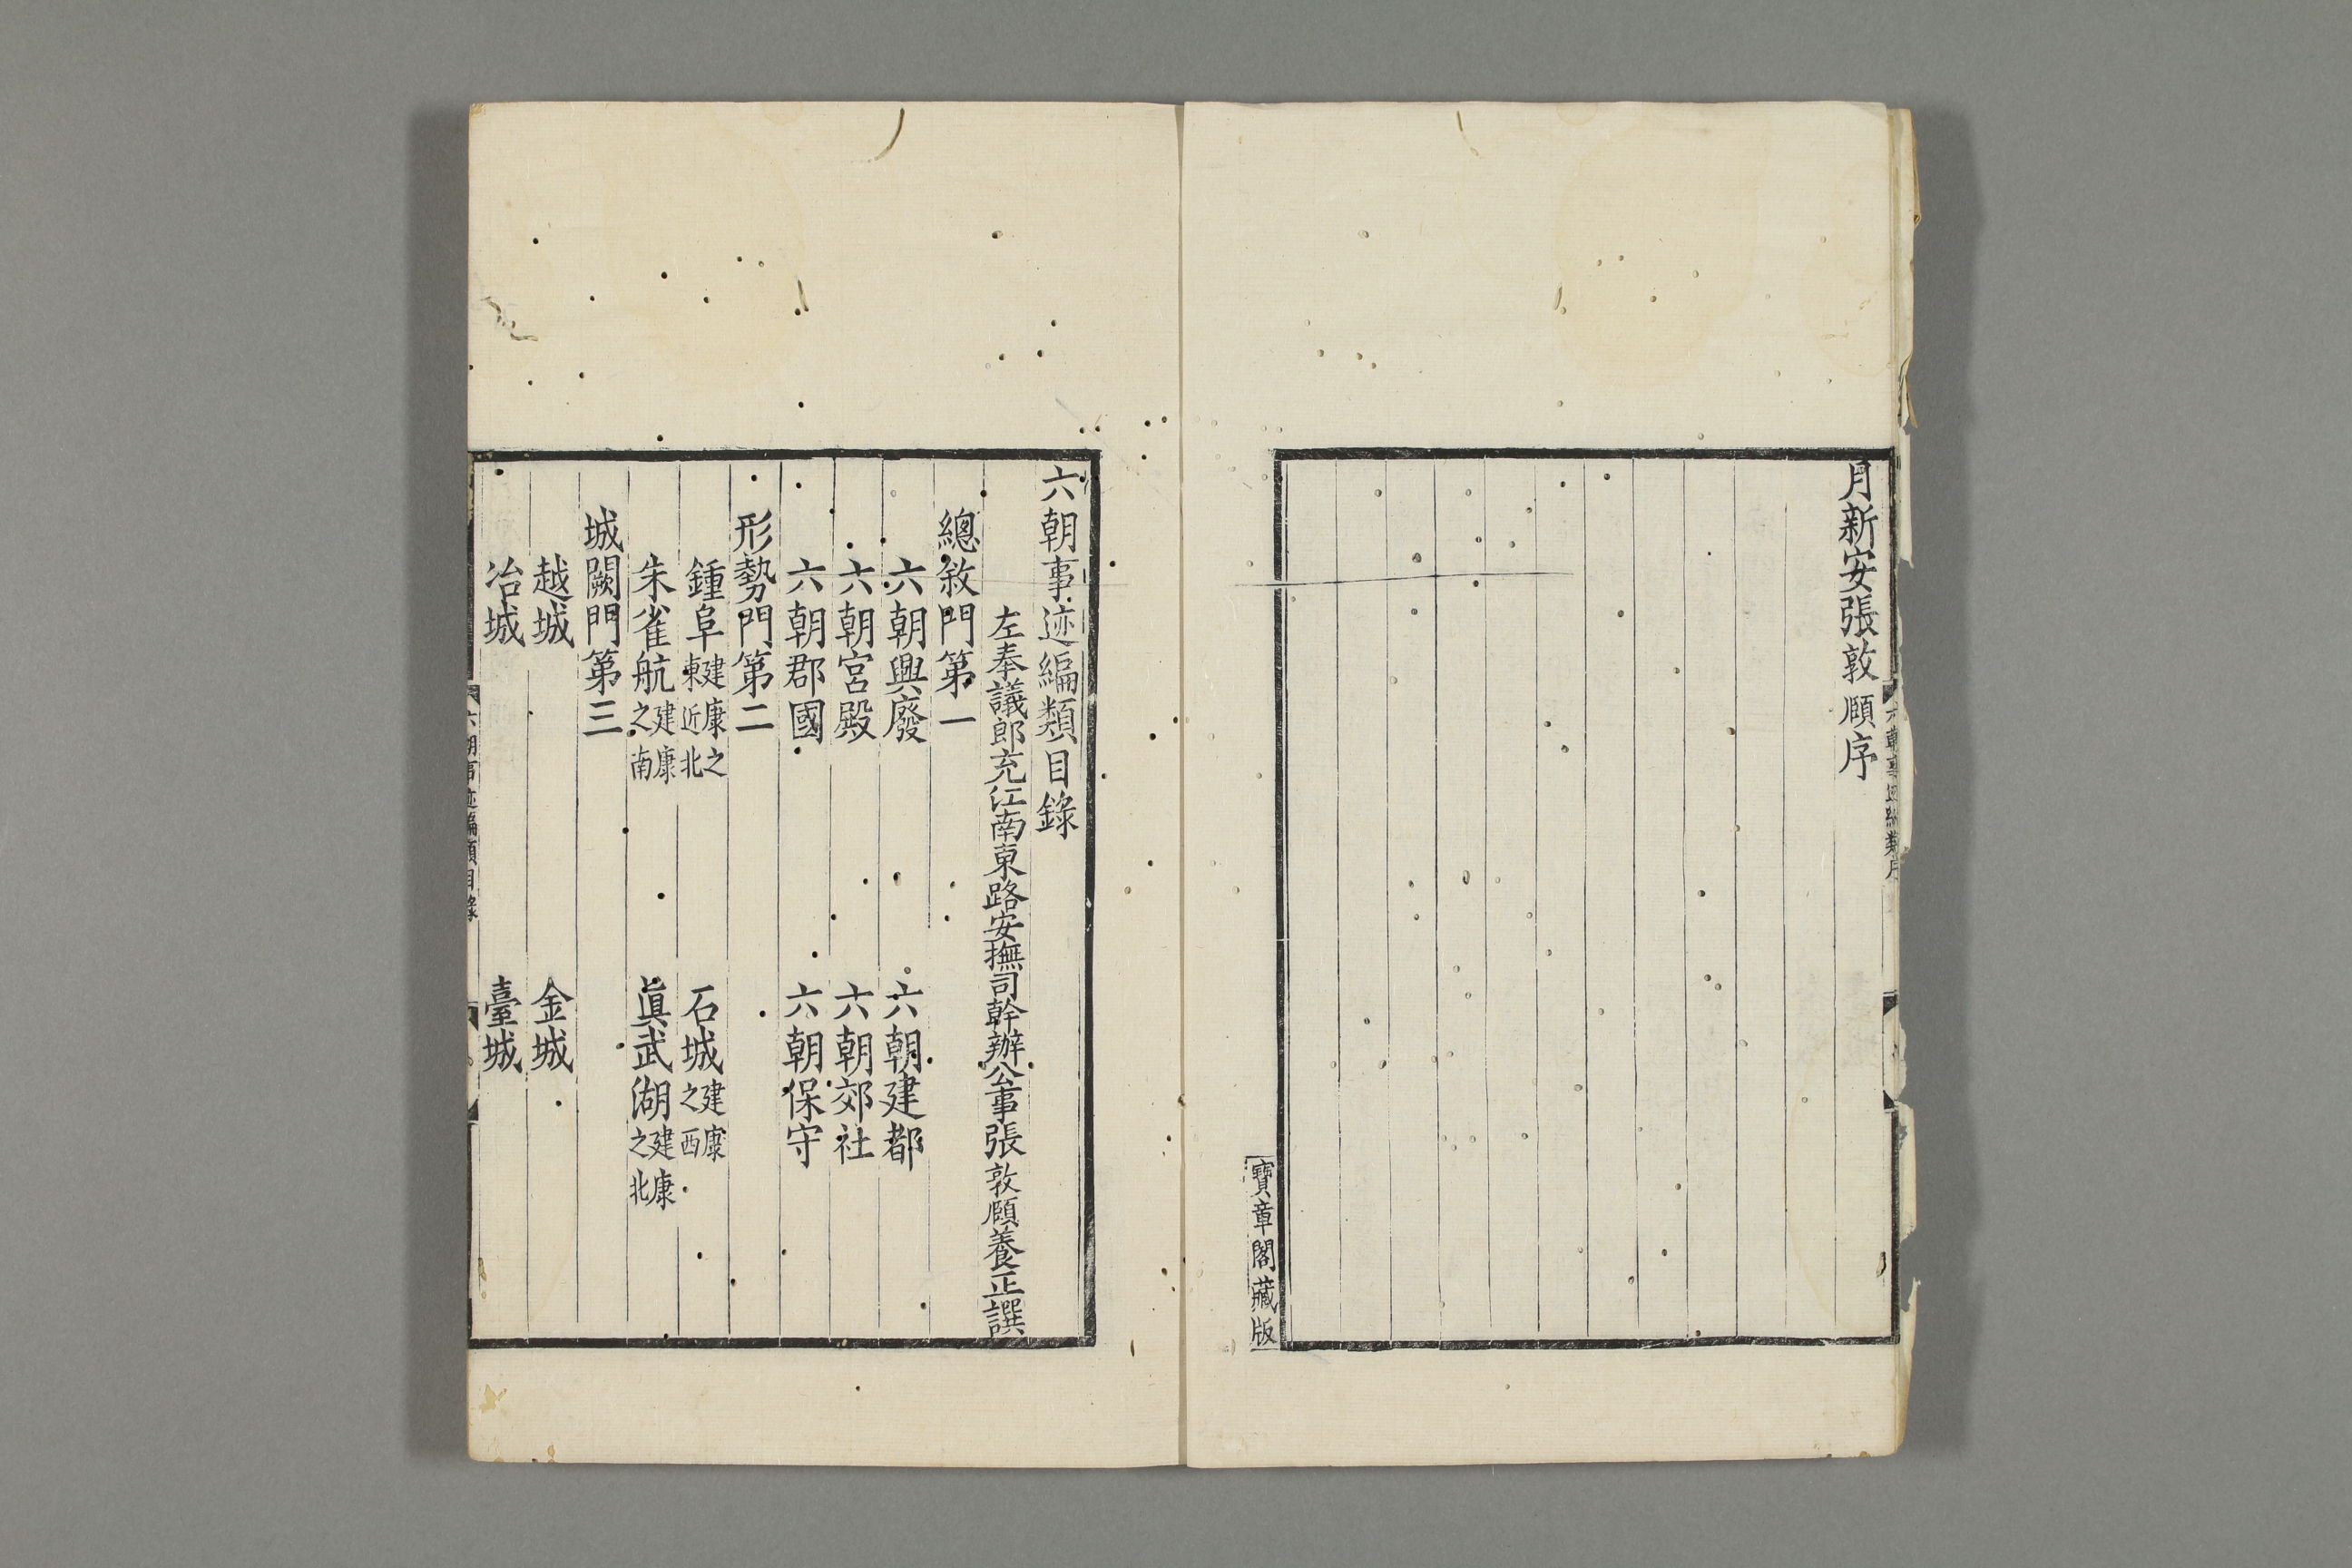 月新安張敦頤序
寶章閣藏版
六朝事迹編類目錄
左奉議郎充江南東路安撫司幹辦公事張敦頤養正譔
總敘門第一
六朝興廢 六朝建都
六朝宮殿 六朝郊社
六朝郡國 六朝保守
形勢門第二
鍾阜建康之東近北 石城建康之西
朱雀航建康之南 眞武湖建康之北
城闕門第三
越城 金城
冶城 臺城
六朝事迹編類目錄